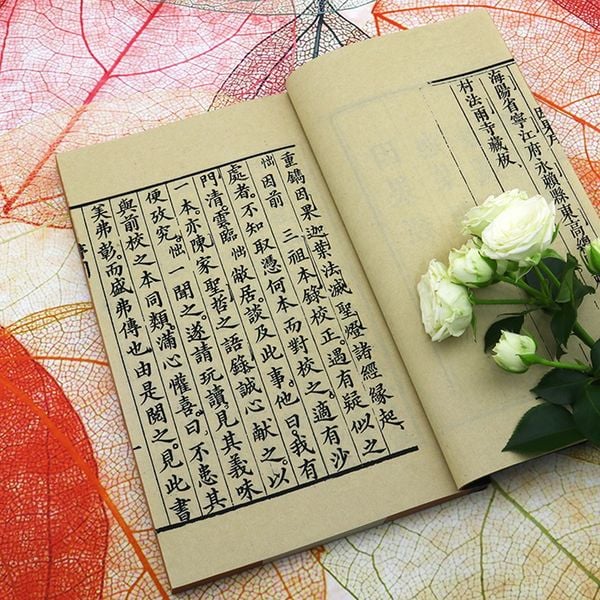 海陽省寧江府永賴縣東高總
村法雨寺藏板
重鐫因果迦葉法滅聖燈諸經緣起
拙因前 三祖本錄校正。遇有疑似之
處者。不知取憑何本而對校之。適有沙
門清雲臨拙敝居。談及此事。他曰。我有
一本。亦陳家聖哲之語錄誠心献之。以
便攷究。拙一聞之。遂請玩讀見其義味
與前校之本同類。滿心懽喜。曰。不患其
美弗彰。而盛弗傳也由是閱之。見此書